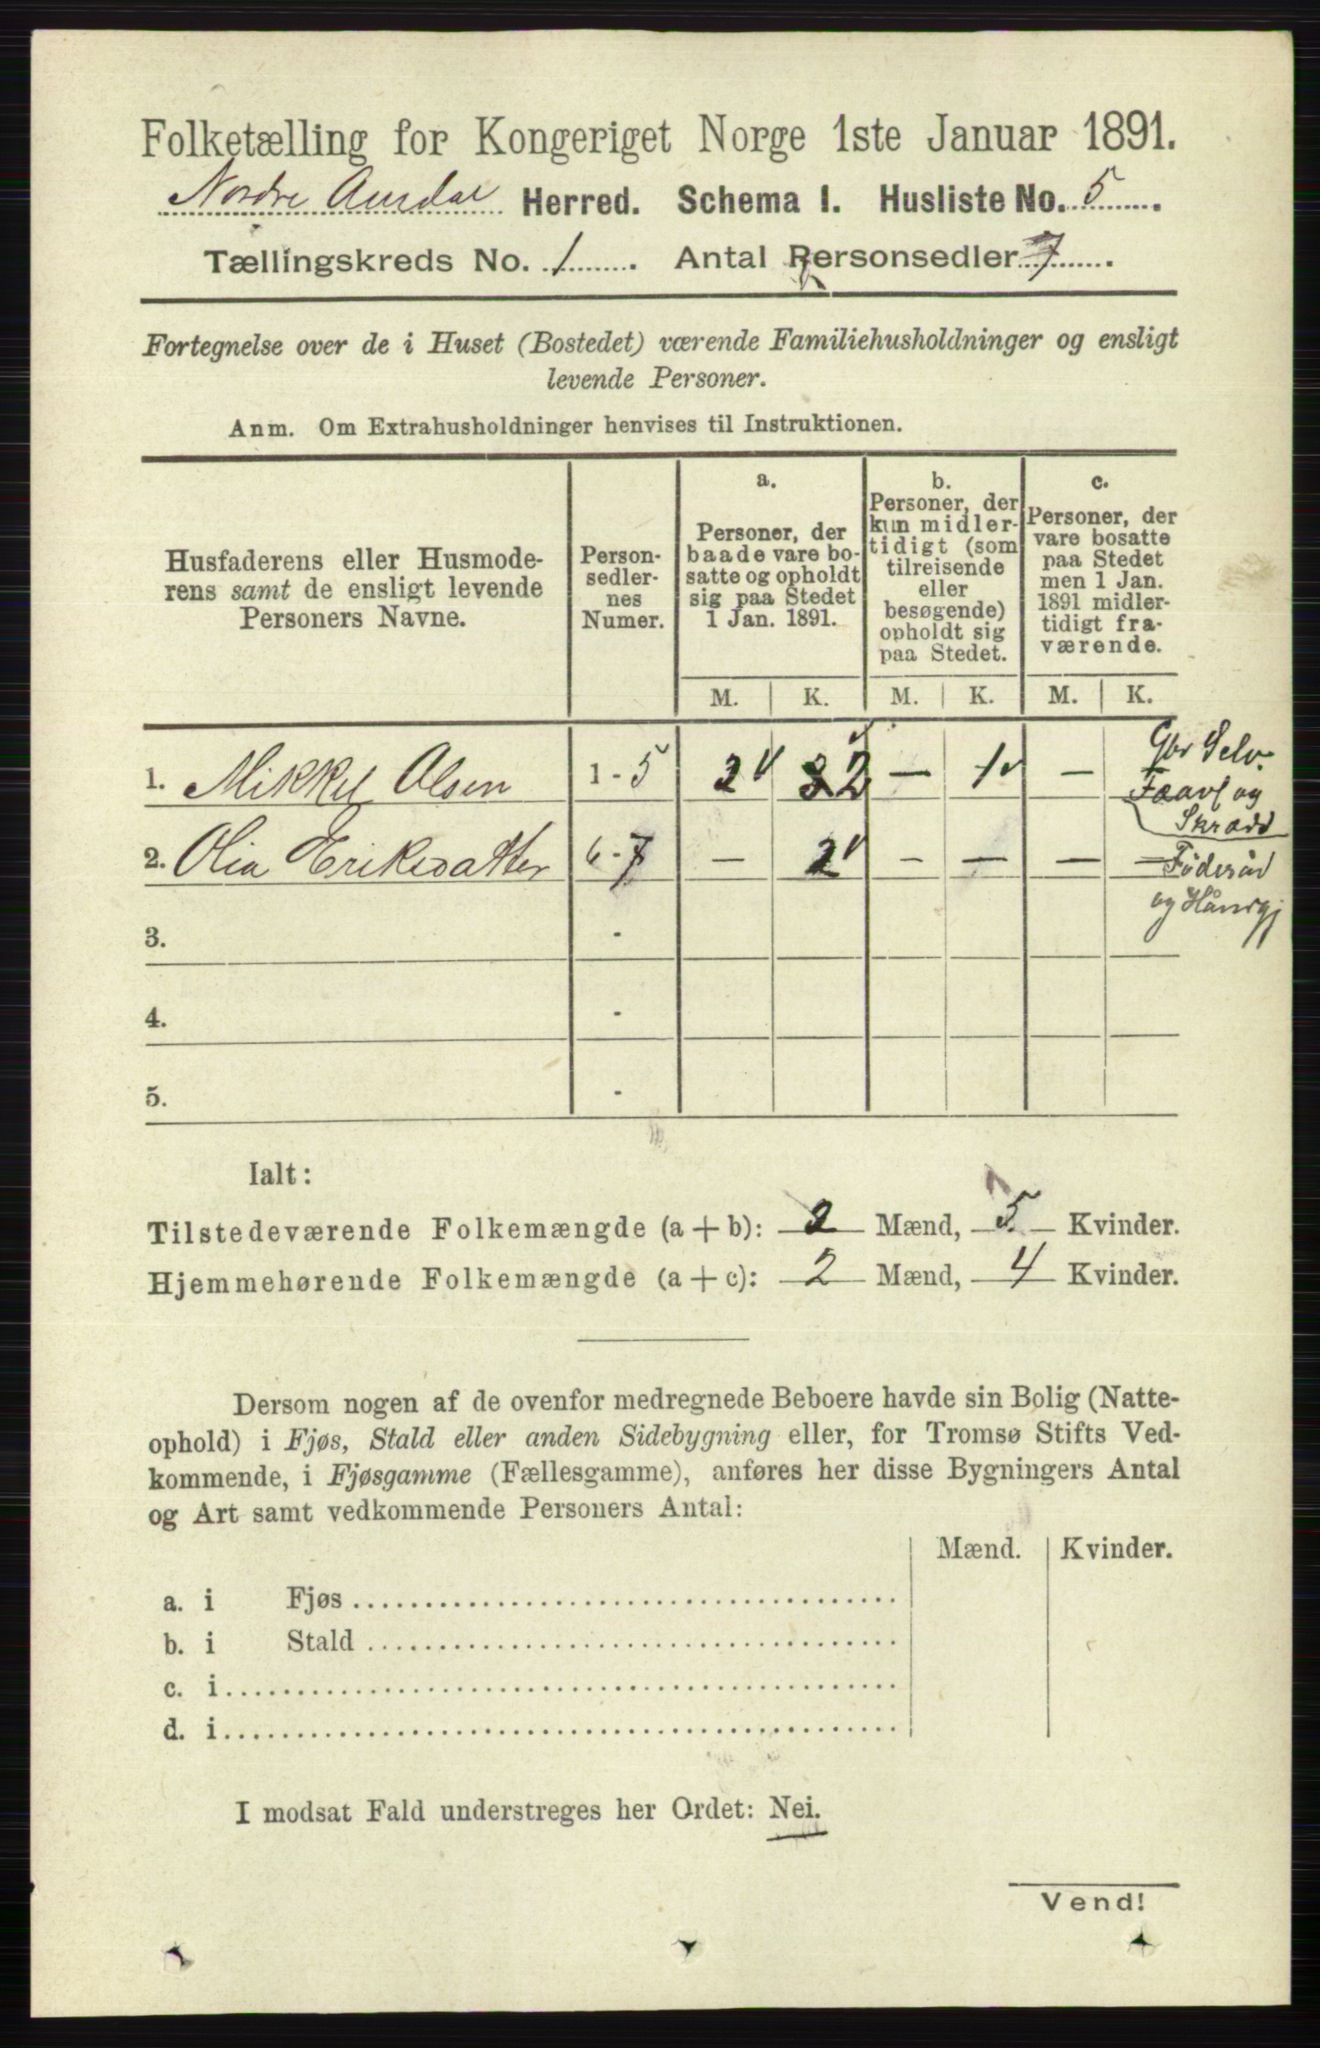 Folketælling for Kongeriget Norge 1ste Januar 1891.
Nordre Aurdal Herred. Schema I. Husliste No. 5
Tællingskreds No. 1. Antal Personsedler 7.
Fortegnelse over de i Huset (Bostedet) værende Familiehusholdninger og ensligt
levende Personer.
Anm. Om Extrahusholdninger henvises til Instruktionen.
Husfaderens eller Husmode-
rens samt de ensligt levende
Personers Navne.
Person-
sedler-
nes
Numer.
a.
Personer, der
baade vare bo-
satte og opholdt
sig paa Stedet
1 Jan. 1891.
b.
Personer, der
kun midler-
tidigt (som
tilreisende
eller
besøgende)
opholdt sig
paa Stedet.
c.
Personer, der
vare bosatte
paa Stedet
men 1 Jan.
1891 midler-
tidigt fra-
værende.
M. K. M. K. M. K.
1. Mikkel Olsen 1 - 5 2 2 — 1 —
Gbr Selv.
Faavl og
Skrædd
2. Olia Eriksdatter 6 - 7 — 2 — — — —
Föderåd
og Håndgj
3. -
4. -
5. -
Ialt:
Tilstedeværende Folkemængde (a + b): 2 Mænd, 5 Kvinder.
Hjemmehørende Folkemængde (a + c): 2 Mænd, 4 Kvinder.
Dersom nogen af de ovenfor medregnede Beboere havde sin Bolig (Natte-
ophold) i Fjøs, Stald eller anden Sidebygning eller, for Tromsø Stifts Ved-
kommende, i Fjøsgamme (Fællesgamme), anføres her disse Bygningers Antal
og Art samt vedkommende Personers Antal:
Mænd. Kvinder.
a. i Fjøs
b. i Stald
c. i
d. i
I modsat Fald understreges her Ordet: Nei.
Vend!